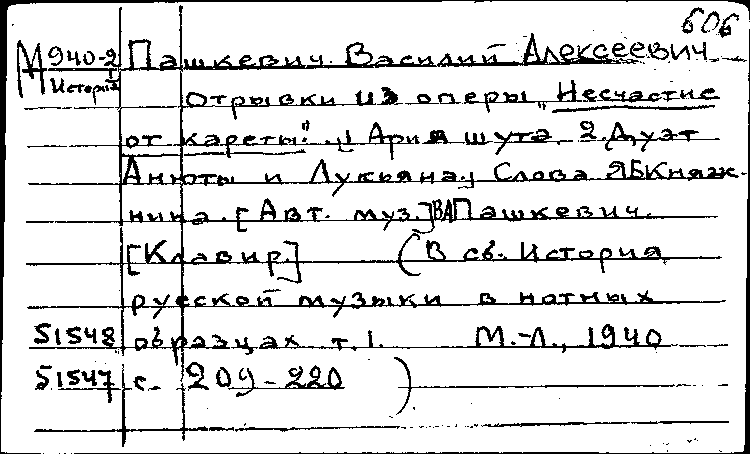 606
М 940-2 Пашкевич Василий Алексеевич
1
История
Отрывки из оперы „Несчастие
от кареты". [1. Ария шута. 2. Дуэт
Анюты и Лукьяна.] Слова ЯБКняж-
нина. [Авт. муз.] ВАПашкевич.
[Клавир.] (В сб. История
русской музыки в нотных
51548 образцах т. 1. М.-Л., 1940
51547 с. 209-220 )